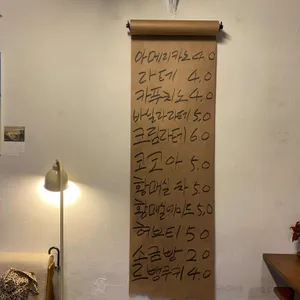 아메리카노 4.0
라떼 4.0
카푸치노 4.0
바닐라라떼 5.0
크림라떼 6.0
코코아 5.0
황매실차 5.0
황매실에이드 5.0
허브티 5.0
소금빵 2.0
르뱅쿠키 4.0